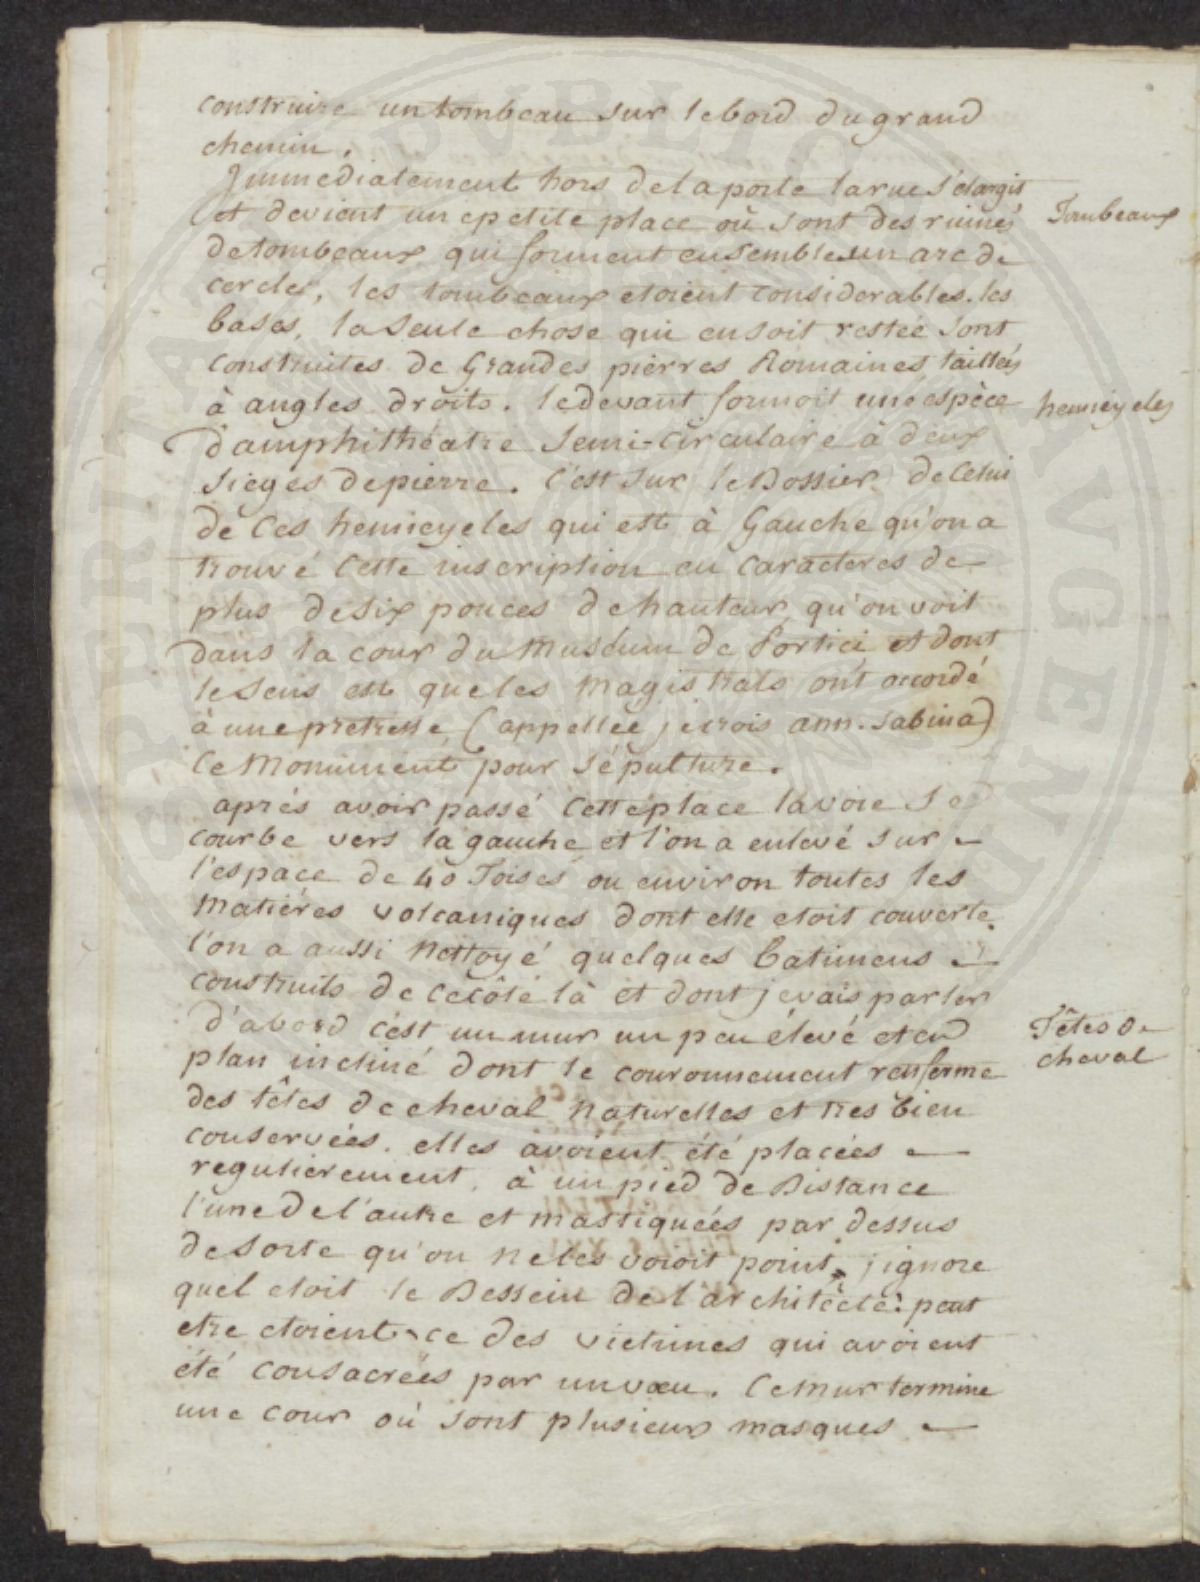 construire un tombeau sur le bord du grand
chemin.
Immediatement hors de la porte la rue s'elargit
et devient une petite place où sont des ruines
Tombeaux
de tombeaux qui forment ensemble un arc de
cercle, les tombeaux etoient considerables. les
bases, la seule chose qui en soit restée sont
construites de Grandes pierres Romaines taillées
à angles droits. le devant formoit une espèce
hemicycles
d'amphithéatre Semi-circulaire à deux
sieges de pierre. C'est sur le Dossier de Celui
de Ces hemicycles qui est à Gauche qu'on a
trouvé Cette inscription en Caracteres de
plus de six pouces de hauteur qu'on voit
dans la cour du Muséum de Portici et dont
le sens est que les Magistrats ont accordé
à une pretresse (appellée je crois ann. sabina)
Ce Monument pour sépulture.
aprés avoir passé Cette place la voie se
courbe vers la gauche et l'on a enlevé sur
l'espace de 40 Toises ou environ toutes les
Matiéres volcaniques dont elle etoit couverte.
l'on a aussi Nettoyé quelques batimens
construits de ce côté là et dont je vais parler
d'abord c'est un mur un peu élevé et en
Têtes de
plan incliné dont le couronnement renferme
cheval
des têtes de cheval Naturelles et tres bien
conservées. elles avoient été placées
regulierement, à un pied de Distance
l'une de l'autre et mastiquées par dessus
de sorte qu'on ne les voioit point. j'ignore
quel etoit le Dessein de l'architècte: peut
etre etoient-ce des victimes qui avoient
été consacrées par un vœu. Ce mur termine
une cour où sont plusieurs masques